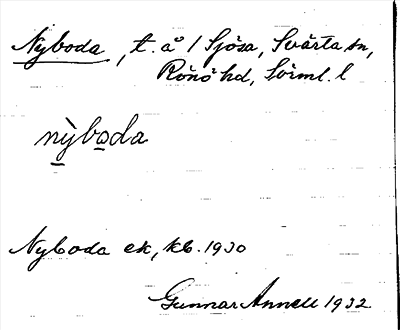 Nyboda, t. å / Sjösa, Svärta sn,
Rönö hd, Sörml. l
nỳboda
Nyboda ek, kb. 1930
Gunnar Annell 1932